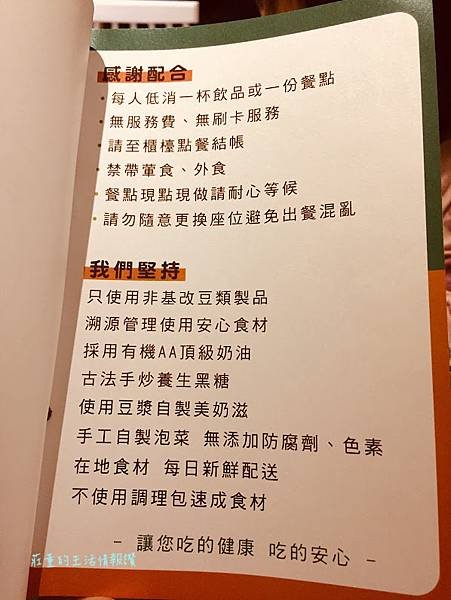 感謝配合
・每人低消一杯飲品或一份餐點
・無服務費、無刷卡服務
・請至櫃檯點餐結帳
・禁帶葷食、外食
・餐點現點現做請耐心等候
・請勿隨意更換座位避免出餐混亂
我們堅持
只使用非基改豆類製品
溯源管理使用安心食材
採用有機AA頂級奶油
古法手炒養生黑糖
使用豆漿自製美奶滋
手工自製泡菜 無添加防腐劑、色素
在地食材 每日新鮮配送
不使用調理包速成食材
- 讓您吃的健康 吃的安心 -
莊董的生活情報讚